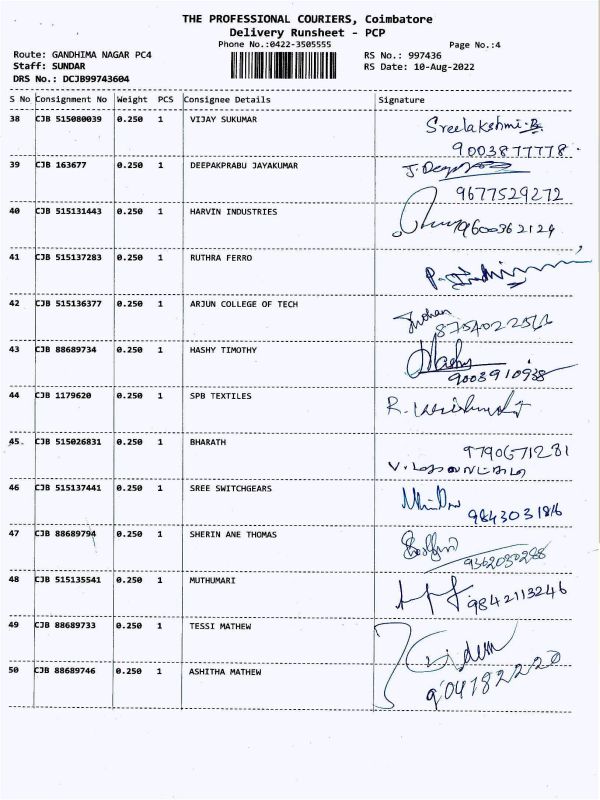 THE PROFESSIONAL COURIERS, Coimbatore
Delivery Runsheet - PCP
Phone No.:0422-3505555 Page No.:4
Route: GANDHIMA NAGAR PC4 RS No.: 997436
Staff: SUNDAR RS Date: 10-Aug-2022
DRS No.: DCJB99743604
S No Consignment No Weight PCS Consignee Details Signature
38 CJB 515080039 0.250 1 VIJAY SUKUMAR Sreelakshmi
9003877778
39 CJB 163677 0.250 1 DEEPAKPRABU JAYAKUMAR
9677529272
40 CJB 515131443 0.250 1 HARVIN INDUSTRIES 9600362124
41 CJB 515137283 0.250 1 RUTHRA FERRO
42 CJB 515136377 0.250 1 ARJUN COLLEGE OF TECH
43 CJB 88689734 0.250 1 HASHY TIMOTHY Hashy
9003910938
44 CJB 1179620 0.250 1 SPB TEXTILES
45 CJB 515026831 0.250 1 BHARATH 9790671281
46 CJB 515137441 0.250 1 SREE SWITCHGEARS
9843031816
47 CJB 88689794 0.250 1 SHERIN ANE THOMAS
9362030288
48 CJB 515135541 0.250 1 MUTHUMARI 9842113246
49 CJB 88689733 0.250 1 TESSI MATHEW
50 CJB 88689746 0.250 1 ASHITHA MATHEW